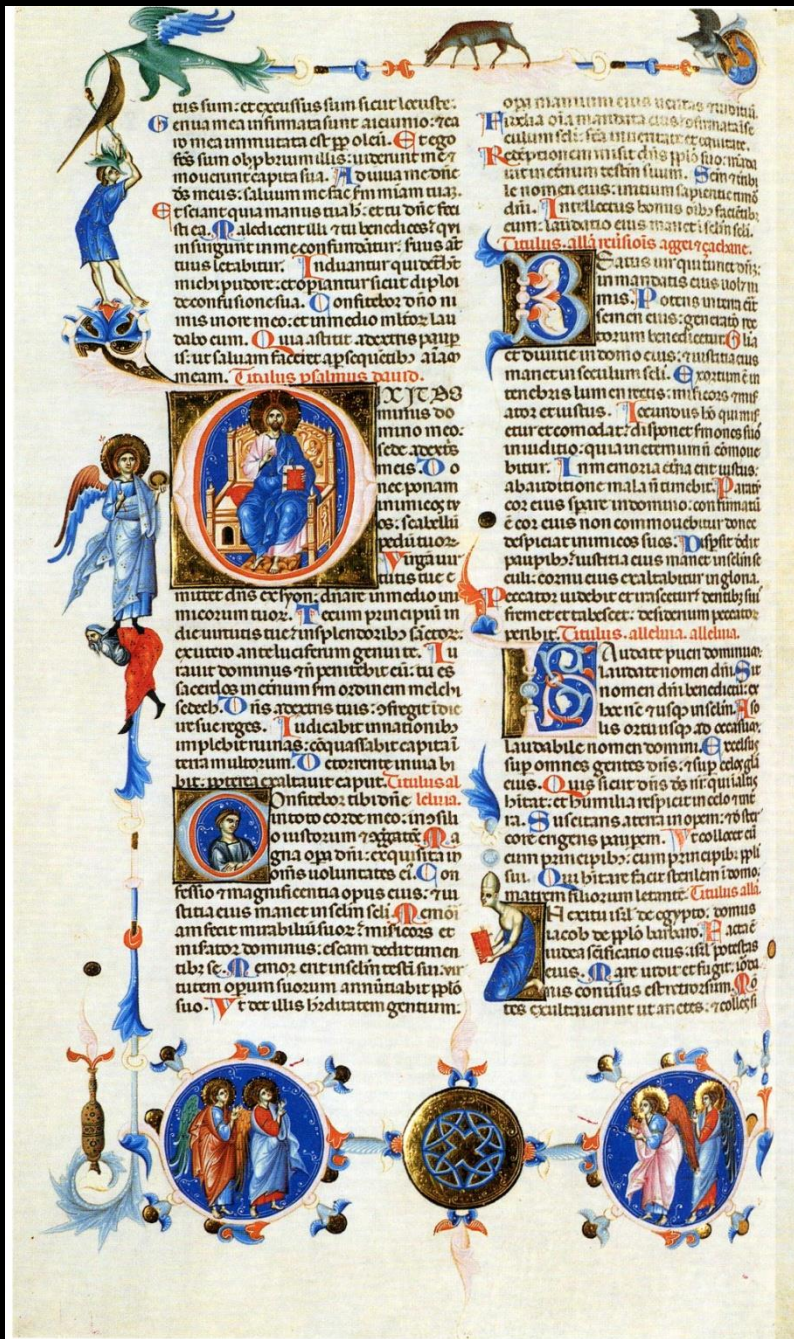 tus sum: et excussus sum sicut locuste.
Genua mea infirmata sunt a ieiunio: et ca
ro mea immutata est pp oleū. Et ego
fcs sum obpbrium illis: uiderunt me et
mouerunt capita sua. Adiuua me dne
ds meus: saluum me fac fm miam tuaz.
Et sciant quia manus tua h: et tu dne feci
sti ea. Maledicent illi et tu benedices: qui
insurgunt in me confundātur: suus āt
tuus letabitur. Induantur qui det̄hūt
michi pudore: et opiantur sicut diploi
de confusione sua. Confitebor dno ni
mis in ore meo: et in medio mltoz lau
dabo eum. Quia astitit a dextris paup
is: ut saluam faceret a psequētib aiam
meam. Titulus psalmus dauid.
DIXIT DO
minus do
mino meo:
sede a dextris
meis. Do
nec ponam
inimicos tu
os: scabellū
pedū tuoz.
Virgā uir
tutis tue e
mittet dns ex syon: dnare in medio ini
micorum tuoz. Tecum principiū in
die uirtutis tue in splendorib sāctoz:
ex utero ante luciferum genui te. Iu
rauit dominus et n̄ penitebit eū: tu es
sacerdos in eternū fm ordinem melchi
sedech. Dns a dextris tuis: ofregit ī die
ire sue reges. Iudicabit in nationib
implebit ruinas: cōquassabit capita ī
terra multorum. De torrente in uia bi
bit: pterea exaltauit caput. Titulus al
Confitebor tibi dne leluia.
in toto corde meo: in osilio
iustorum et oggatiōe. Ma
gna opa dni: exquisita in
omis uoluntates ei. Con
fessio et magnificentia opus eius: et iu
stitia eius manet in sclm scli. Memori
am fecit mirabiliū suoz: misicors et
misator dominus: escam dedit timen
tibz se. Memor erit in sclm testī sui: uir
tutem opum suorum annūtiabit pplo
suo. Vt det illis hrditatem gentium:
opa manuum eius ueritas et iuditiū.
Fidelia oīa mandata eius ofirmata ī se
culum scli: fca in ueritate et equitate.
Redēptionem misit dns pplo suo: māda
uit in eternum testm suum. Scm et tribi
le nomen eius: initium sapientie timor
dni. Intellectus bonus oib faciētib
eum: laudatio eius manet ī sclm scli.
Titulus. alla reuisiois aggei et zacharie.
BEatus uir qui timet dnz:
in mandatis eius uolz ni
mis. Potens in terra erit
semen eius: generatio rec
torum benedicetur. Glia
et diuitie in domo eius: et iustitia eius
manet in seculum scli. Exortum ē in
tenebris lumen rectis: misicors et mis
ator et iustus. Iocundus ho qui mis
etur et comodat: disponet smones suos
in iuditio: quia in eternum n̄ comoue
bitur. In memoria etna erit iustus:
ab auditione mala n̄ timebit. Paratū
cor eius spare in domino: confirmatū
ē cor eius non commouebitur donec
despiciat inimicos suos. Dispsit dedit
paupib: iustitia eius manet in sclm se
culi: cornu eius exaltabitur in gloria.
Peccator uidebit et irascetur: dentib suis
fremet et tabescet: desiderium peccatoz
peribit. Titulus. alleluia. alleluia.
LAudate pueri dominum:
laudate nomen dni. Sit
nomen dni benedictū: ex
hoc nc et usq in sclm. A so
lis ortu usq ad occasum:
laudabile nomen domini. Excelsus
sup omnes gentes dns: et sup celos glia
eius. Quis sicut dns ds nr qui ī altis
hitat: et humilia respicit in celo et in ter
ra. Suscitans a terra inopem: et de ster
core erigens paupem. Vt collocet eū
cum principib: cum principib ppli
sui. Qui hitare facit sterilem ī domo:
matrem filiorum letantē. Titulus alla
IN exitu isrl de egypto: domus
iacob de pplo barbaro. Facta ē
iudea scificatio eius: isrl potestas
eius. Mare uidit et fugit: iorda
nis conuersus est retrorsum. Mō
tes exultauerunt ut arietes: et colles si